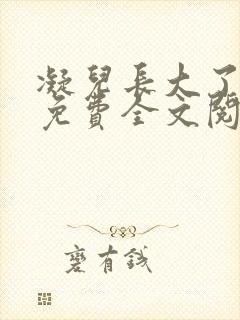 凝兒長大了
免費全文閱
蹇有錢